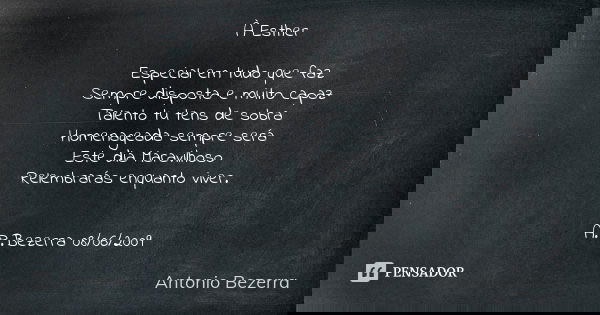 Â Esther
Especial em tudo que faz
Sempre disposta e muito capaz
Talento tu tens de sobra
Homenageada sempre será
Este dia Maravilhoso
Relembrarás enquanto viver.
A.P.Bezerra 08/06/2009
Antonio Bezerra
PENSADOR